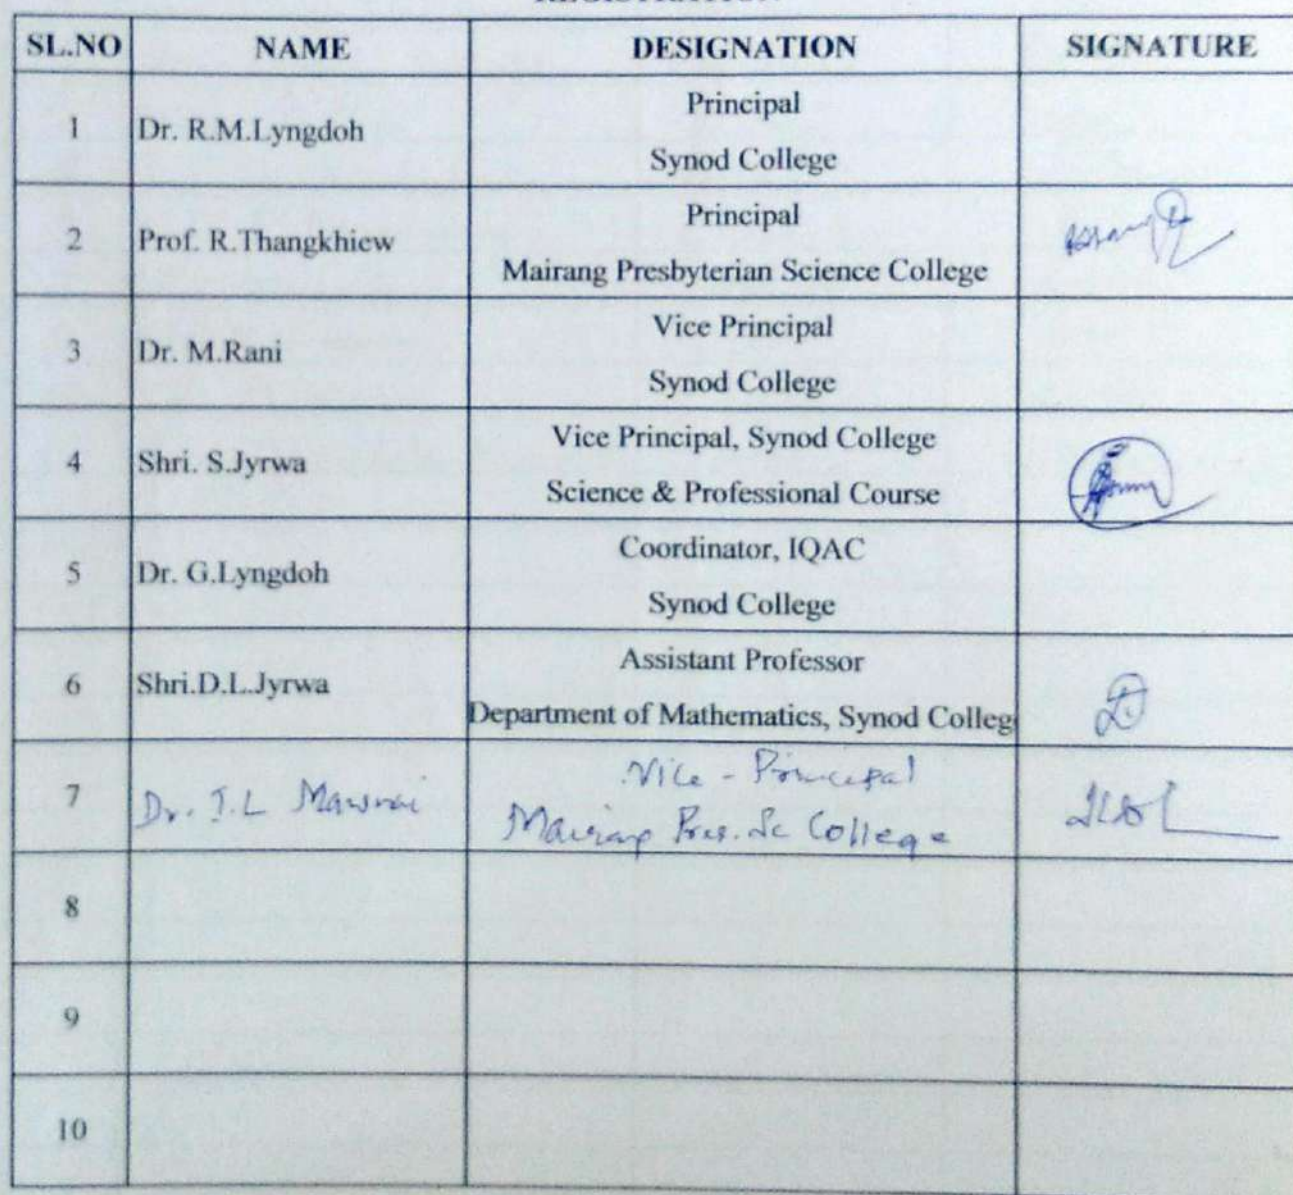 SL.NO NAME DESIGNATION SIGNATURE
1 Dr. R.M.Lyngdoh Principal
Synod College
2 Prof. R.Thangkhiew Principal
Mairang Presbyterian Science College
3 Dr. M.Rani Vice Principal
Synod College
4 Shri. S.Jyrwa Vice Principal, Synod College
Science & Professional Course
5 Dr. G.Lyngdoh Coordinator, IQAC
Synod College
6 Shri.D.L.Jyrwa Assistant Professor
Department of Mathematics, Synod Colleg
7 Dr. Vice - Principal
Mairang Pres. Sc College
8
9
10